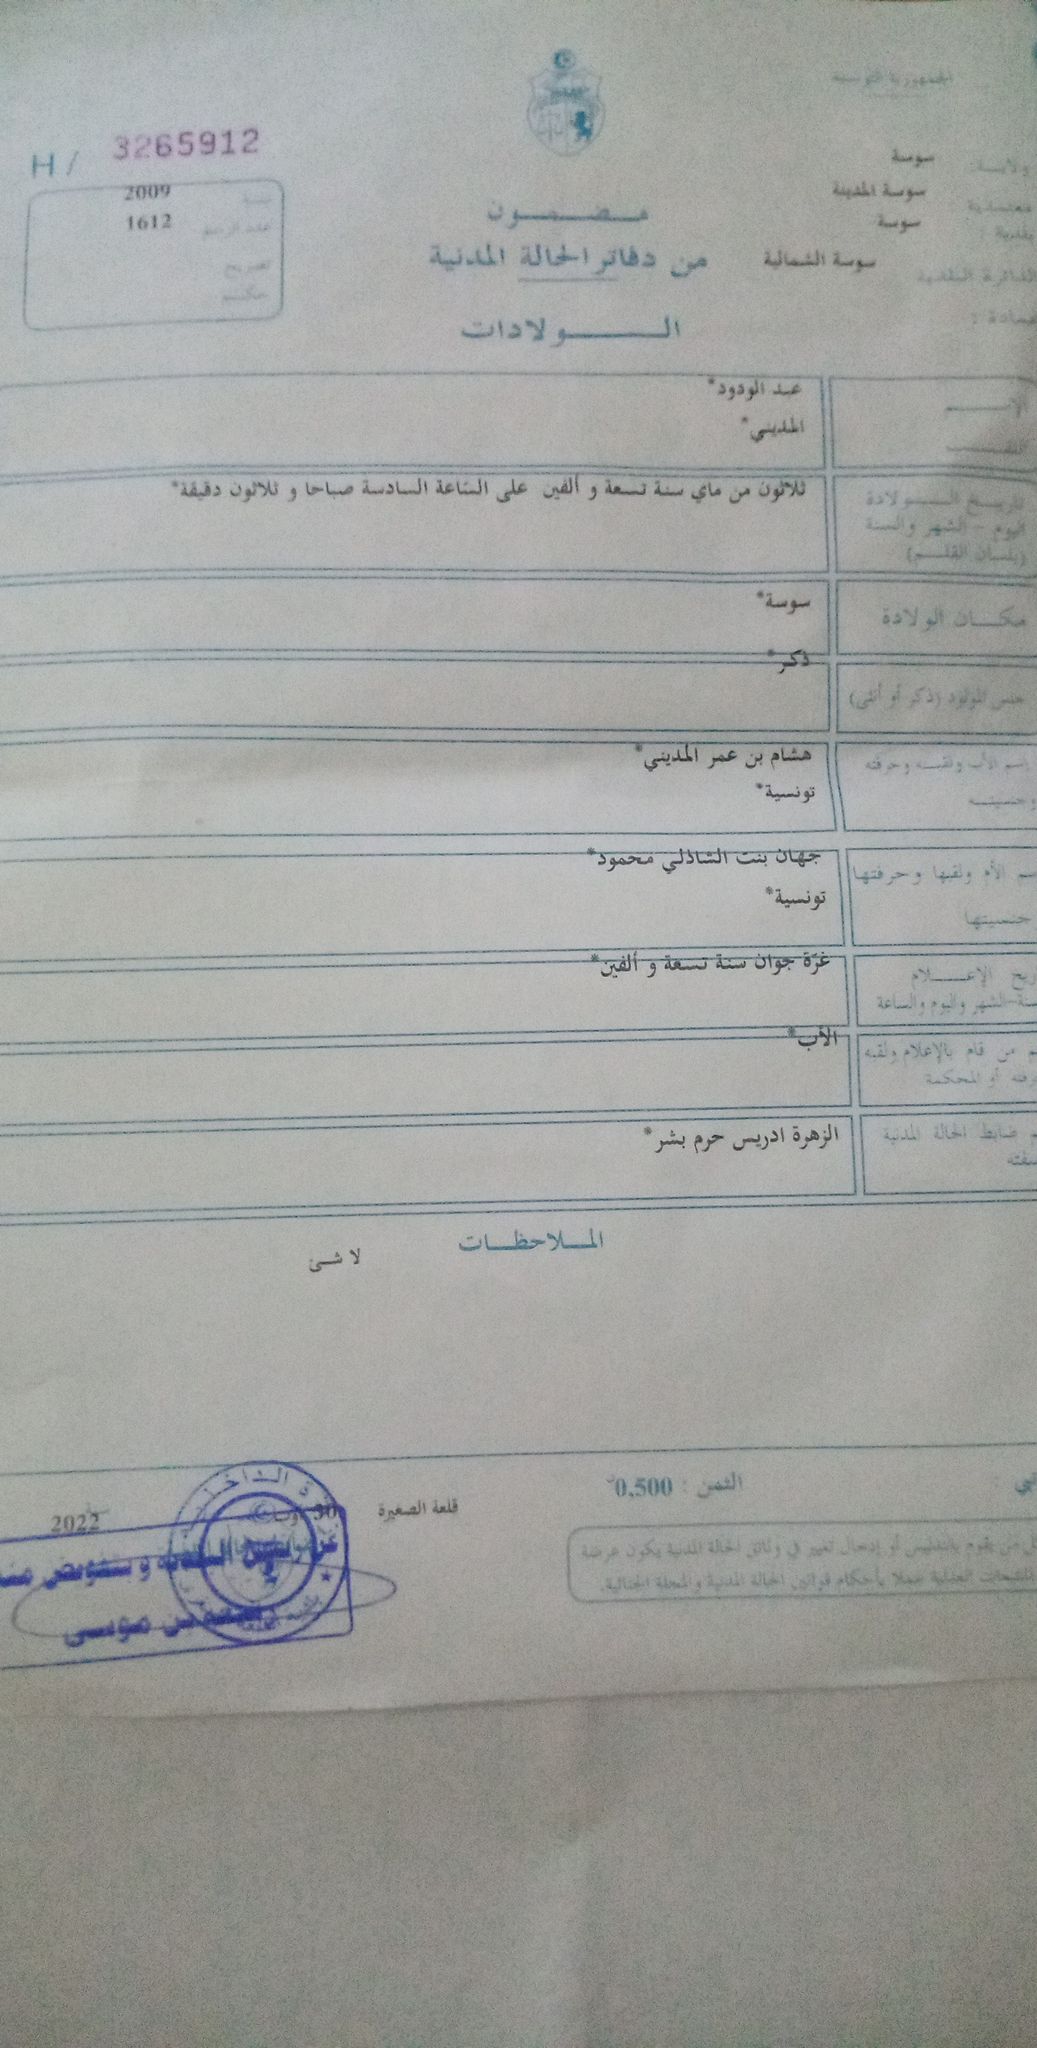 الجمهورية التونسية
H / 3265912
ولاية: سوسة
معتمدية سوسة المدينة
بلدية : سوسة
الدائرة البلدية سوسة الشمالية
عمادة :
سنة 2009
عدد الرسم 1612
تصريح
حكم
مضمون
من دفاتر الحالة المدنية
الولادات
الإسم
عبد الودود*
اللقب
المديني*
تاريخ الولادة
اليوم - الشهر والسنة
(بلسان القلم)
ثلاثون من ماي سنة تسعة و ألفين على الساعة السادسة صباحا و ثلاثون دقيقة*
مكان الولادة
سوسة*
جنس المولود (ذكر أو أنثى)
ذكر*
إسم الأب ولقبه وحرفته
وجنسيته
هشام بن عمر المديني*
تونسية*
سم الأم ولقبها وحرفتها
جنسيتها
جهان بنت الشاذلي محمود*
تونسية*
ريخ الإعلام
سنة-الشهر واليوم والساعة
غرّة جوان سنة تسعة و ألفين*
م من قام بالإعلام ولقبه
رفته أو المحكمة
الأب*
م ضابط الحالة المدنية
صفته
الزهرة ادريس حرم بشر*
الملاحظات
لا شئ
الثمن : 0,500
قلعة الصغيرة 30 2022
من يقوم بتدليس أو إدخال تغيير في وثائق الحالة المدنية يكون عرضة
للتتبعات العدلية عملا بأحكام قوانين الحالة المدنية والمجلة الجنائية.
و بتفويض منه
بن موسى